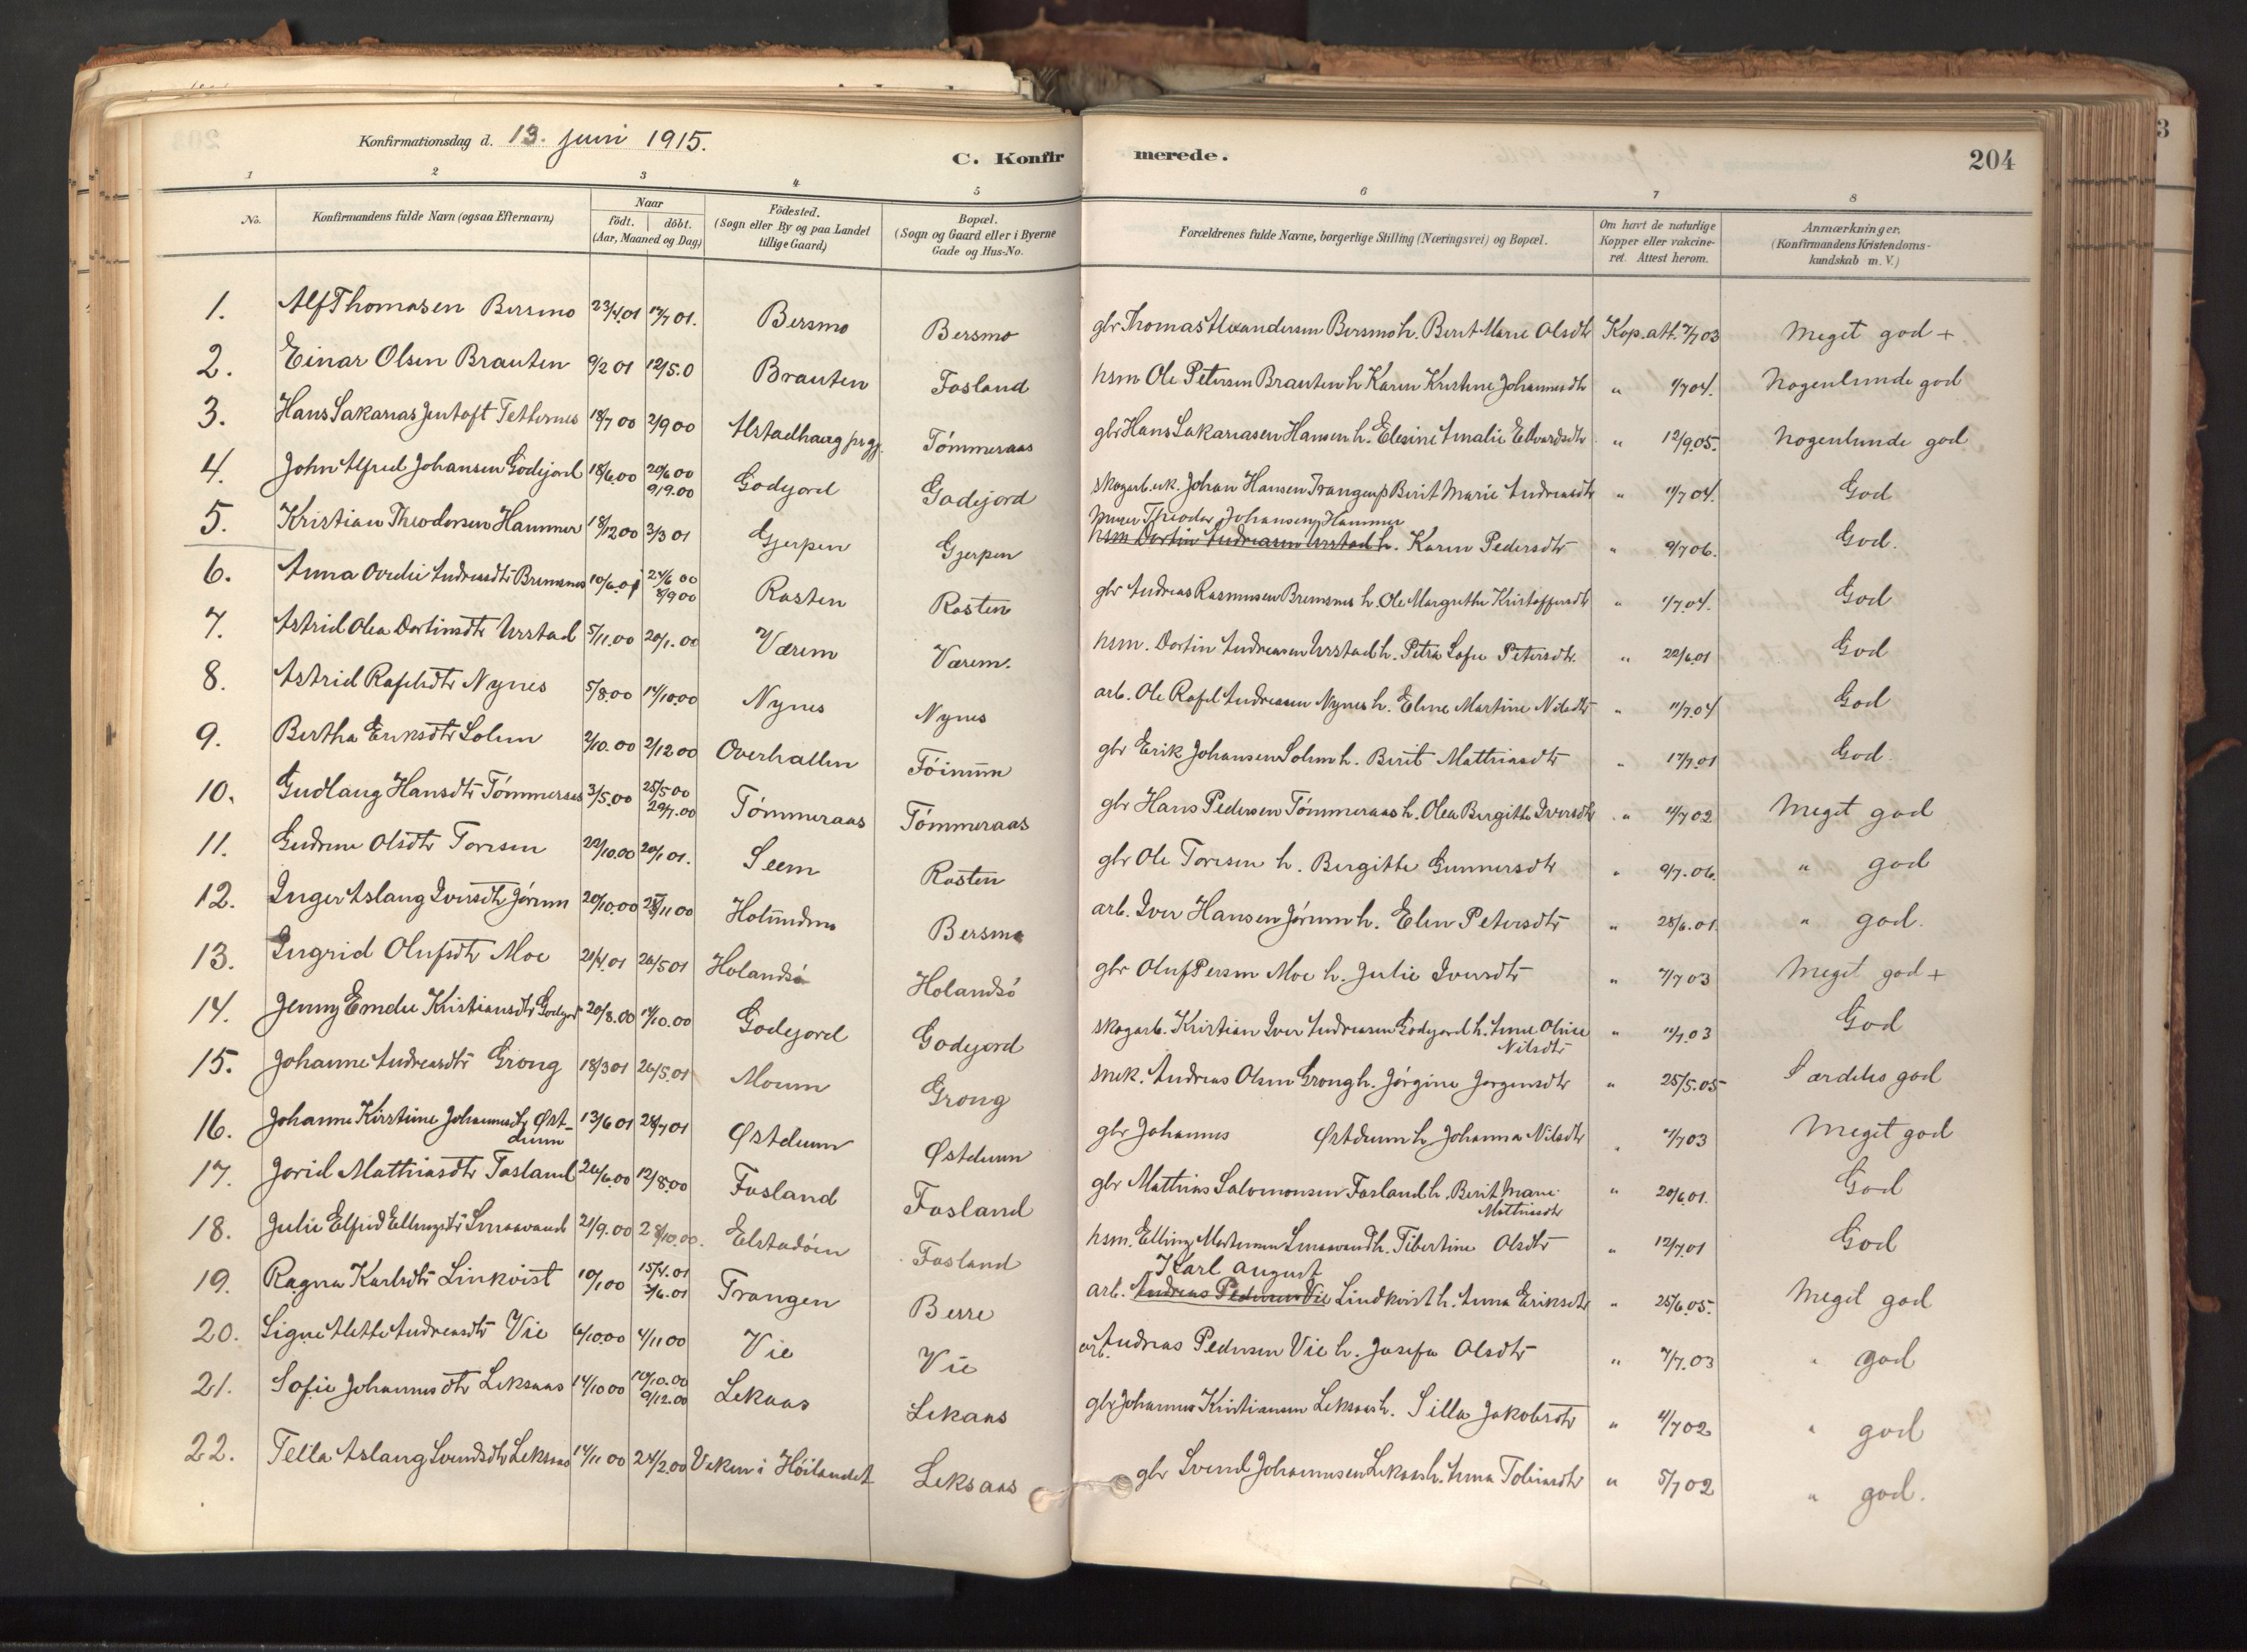 Konfirmationsdag d. 13. Juni 1915.
C. Konfirmerede.
204
1 2 3 4 5 6 7 8
No.
Konfirmandens fulde Navn (ogsaa Efternavn)
Naar
födt. döbt.
(Aar, Maaned og Dag)
Födested.
(Sogn eller By og paa Landet
tillige Gaard)
Bopæl.
(Sogn og Gaard eller i Byerne
Gade og Hus-No.
Forældrenes fulde Navne, borgerlige Stilling (Næringsvei) og Bopæl.
Om havt de naturlige
Kopper eller vakcine-
ret. Attest herom.
Anmærkninger.
(Konfirmandens Kristendoms-
kundskab m. V.)
1. Alf Thomasen Bersmo 23/4.01 Bersmo Bersmo gbr Thomas Alexandersen Bersmo h. Berit Marie Olsdtr Kop.att. 7/7 03 Meget god +
2. Einar Olsen Brauten 9/2 01 12/5.0 Brauten Fosland hsm Ole Petersen Brauten h Karen Kristine Johannesdtr " 11/7 04. Nogenlunde god
3. Hans Sakarias Jentoft Tetternes 18/7 00 2/9 00 Alstadhaug prgj. Tömmeraas gbr Hans Sakariasen Hansen h. Elesine Amalie Edvardsdtr " 12/9.05. Nogenlunde god
4. John Alfred Johansen Godejord 18/6.00 20/6 00 9/9.00 Godejord Godejord skogarb. Johan Hansen Berit Marie Andreasdtr " 11/7 04. God
5. Kristian Theodorsen Hammer 18/12 00 3/3 01 Gjerpen Gjerpen Murer Theodor Johansen Hammer
hsm Dortin Andreasen Urstad h. Karen Pedersdtr " 9/7 06. God.
6. Anna Ovedie Andreasdtr Bremsnes 10/6.01 24/6 00 8/9 00 Rosten Rosten gbr Andreas Rasmusen Bremsnes h. Ole Margrethe Kristoffersdtr " 11/7.04. God
7. Astrid Olea Dortinsdtr Urstad 5/11.00 20/1.00 Værem Værem. hsm. Dortin Andreasen Urstad h. Petra Sofie Petersdtr. " 22/6.01 God
8. Astrid Rafelsdtr Nynes 5/8.00 14/10.00 Nynes Nynes arb. Ole Rafel Andreasen Nynes h. Eline Martine Nilsdtr " 11/7.04 God
9. Bertha Eriksdtr Solum 2/10.00 2/12 00 Overhallen Töinum gbr Erik Johansen Solum h. Berit Mathiasdtr " 17/7.01 God.
10. Gudlaug Hansdtr Tömmeraas 3/5.00 25/5 00 29/7.00 Tömmeraas Tömmeraas gbr Hans Pedersen Tömmeraas h. Olea Bergitte Iversdtr " 4/7 02 Meget god
11. Gudrun Olsdtr Toresen 22/10.00 20/1 01. Seem Rosten gbr Ole Toresen h. Bergitte Gunnersdtr " 9/7.06. " god
12. Inger Aslaug Iversdtr Jörum 20/10.00 28/11 00 Bersmo arb. Iver Hansen Jörum h. Elen Petersdtr " 28/6.01. " god.
13. Ingrid Olufsdtr Moe 21/4.01 26/5 01 Holandsö Holandsö gbr Oluf Persen Moe h. Julie Iversdtr " 7/7 03 Meget god +
14. Jenny Emelie Kristiansdtr Godejord 20/8.00 14/10.00 Godejord Godejord skogarb. Kristian Iver Andreasen Godejord h. Anne Oline
Nilsdtr " 11/7.03 God
15. Johanne Andreasdtr Grong 18/3 01 26/5.01 Moum Grong snek. Andreas Olsen Grong h. Jörgine Jorgensdtr " 25/5.05 Særdeles god
16. Johanne Kirstine Johannesdtr Øst-
duun 13/6 01 28/7 01 Østduun Østduun gbr Johannes Østduun h Johanna Nilsdtr " 7/7 03 Meget god
17. Jorid Mathiasdtr Fosland 26/6.00 12/8.00 Fosland Fosland gbr Mathias Salomonsen Fosland h. Berit Marie
Mathiasdtr " 20/6.01. God
18. Julie Elfrid Ellingsdtr Smaavand 21/9.00 28/10.00. Elstadöen Fosland hsm. Elling Mortensen Smaavand h. Tibertine Olsdtr " 12/7.01 God
19. Ragna Karlsdtr Linkvist 10/1 00 15/4.01 2/6.01 Trangen Berre Karl August
arb. Andreas Pedersen Vie Lindkvist h. Anna Eriksdtr " 25/6.05. Meget god
20. Signe Alette Andreasdtr Vie 6/10.00 4/11 00 Vie Vie arb. Andreas Pedersen Vie h. Josefa Olsdtr " 7/7.03 " god
21. Sofie Johannesdtr Leksaas 14/10 00 19/10.00 9/12.00 Lekaas Lekaas gbr Johannes Kristiansen Leksaas h. Silla Jakobsdtr " 4/7 02 " god
22. Tella Aslaug Svendsdtr Leksaas 14/11 00 24/2.00 Veken i Höilandet Leksaas gbr Svend Johannesen Leksaas h. Anna Tobiasdtr " 5/7 02 " god.